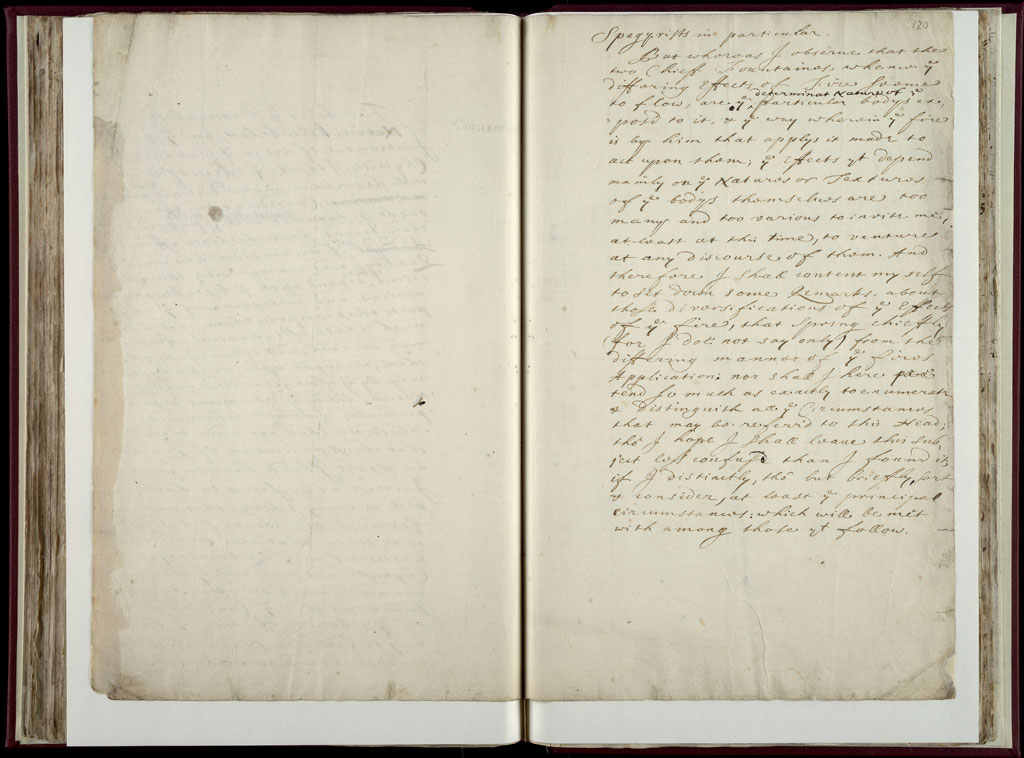 120
Spagyrists in particular.
But whereas I observe that the
two Chief Fountaines whence yͤ
differing Effects of Fire seeme
determinat Nature of yͤ
to flow, are yͤ particular bodys ex-
posd to it, & yͤ way wherein yͤ fire
is by him that applys it made to
act upon them; yͤ Effects yt depend
mainly on yͤ Natures or Textures
of yͤ bodys themselves are too
many and too various to invite me,
at least at this time, to venture
at any discourse of them. And
therefore I shall content my self
to set down some Remarks, about
those diversifications of yͤ Effects
of yͤ fire, that spring chiefly
(for I doe not say only) from the
differing manner of yͤ fires
Application: nor shall I here pre
tend so much as exactly to enumerate
& distinguish all yͤ Circumstances
that may be referrd to this Head;
thô I hope I shall leave this sub
ject less confusd than I found it,
if I distinctly, thô but briefly, sort
& consider, at least yͤ principal
circumstances: which will be met
with among those yt follow.